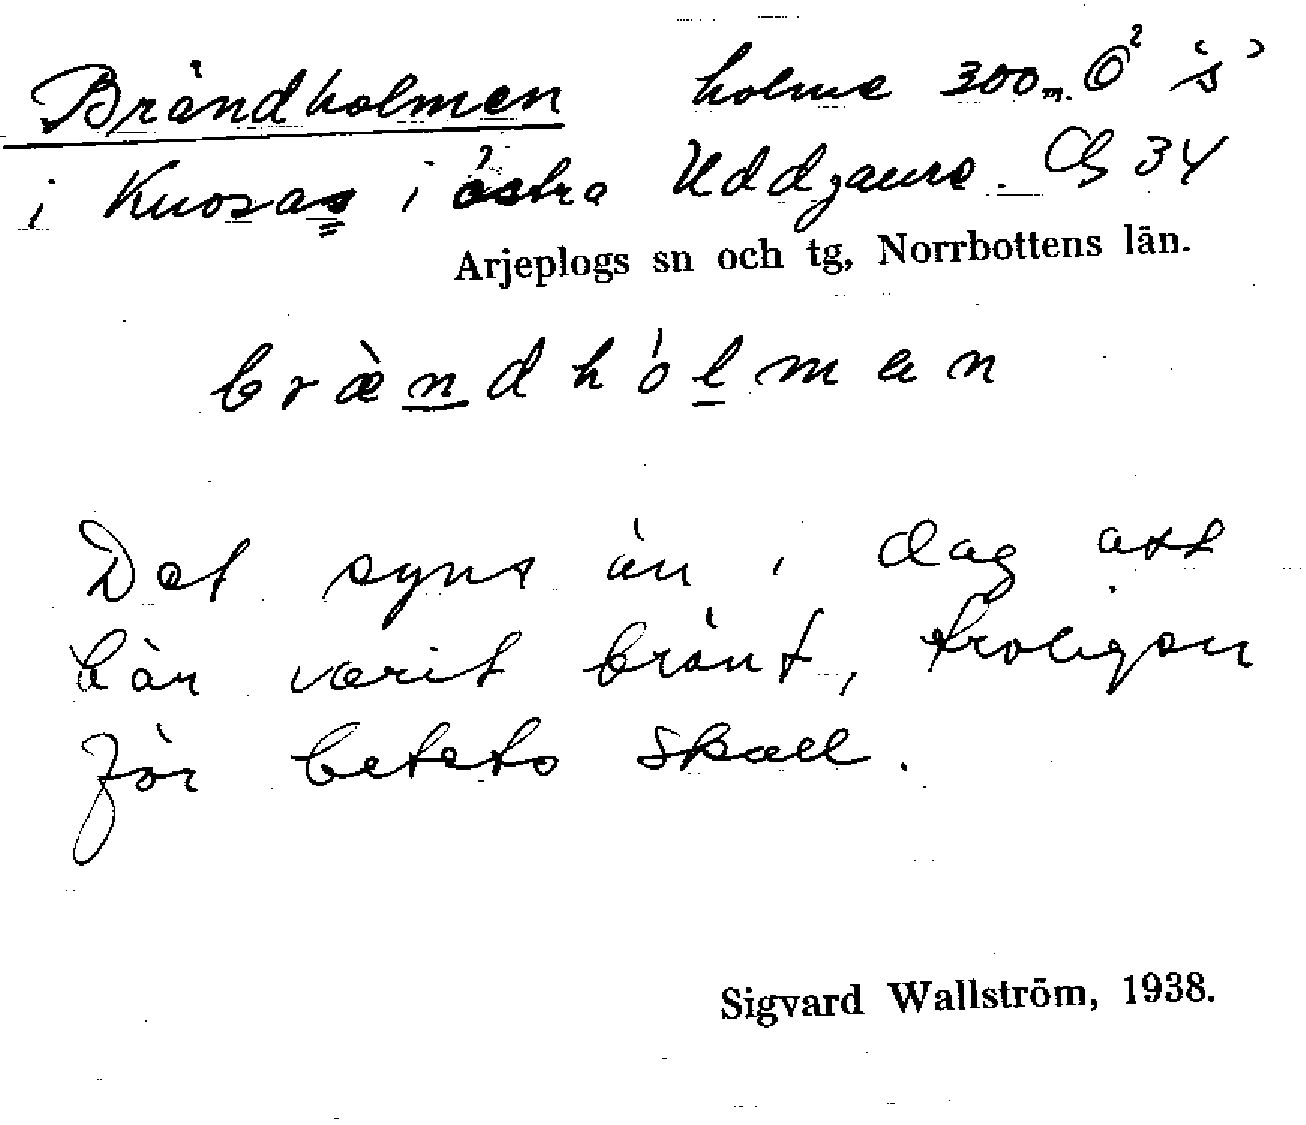 Brändholmen holme 300 m. Ö² 's'
i Kuosas i östra Uddjaure. Cb 34
Arjeplogs sn och tg, Norrbottens län.
bræ̀ndhólman
Det syns än i dag att
här varit bränt, troligen
för betets skull.
Sigvard Wallström, 1938.